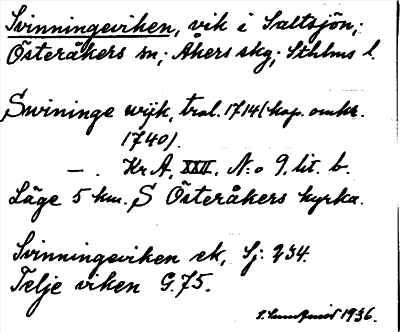 Svinningeviken, vik i Saltsjön,;
Österåkers sn,; Åkers skg; Sthlms l.
Swininge wijk, tral. 1714 (kop. omkr.
1740).
— . Kr A, XXII. N:o 9, lit. b.
Läge 5 km. S Österåkers kyrka.
Svinningeviken ek, Sj: 234.
Telje viken G. 75.
1936.